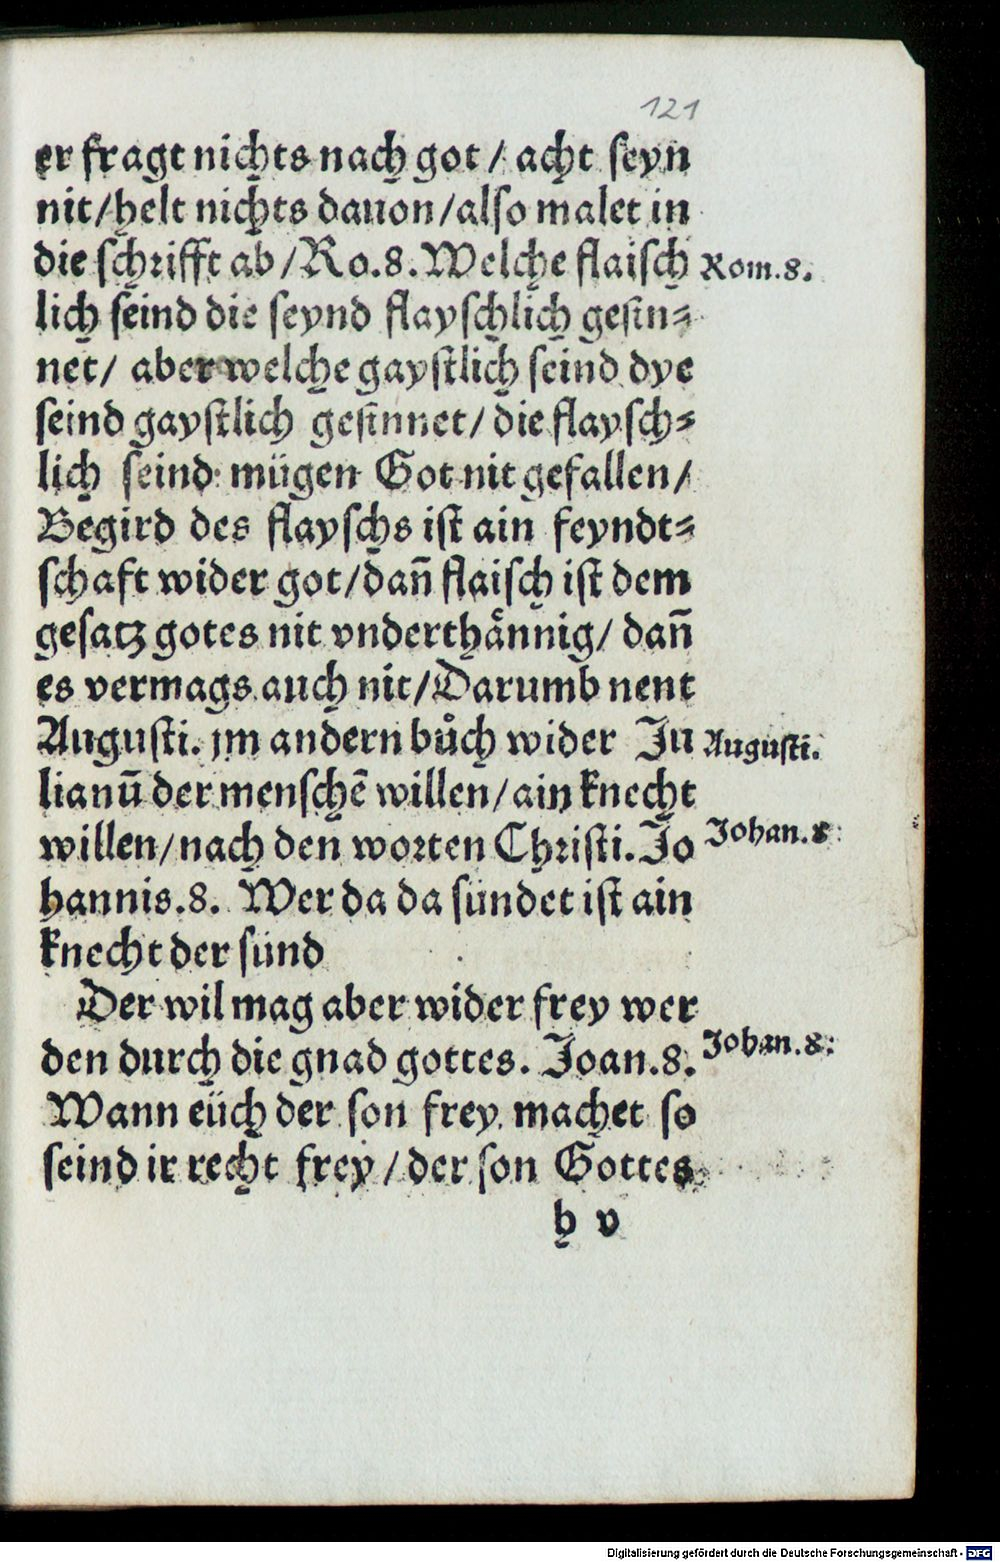 121
er fragt nichts nach got / acht seyn
nit/helt nichts dauon/also malet in
die schrifft ab/Ro.8.Welche flaisch
Rom.8.
lich seind die seynd flayschlich gesin⸗
net/ aber welche gaystlich seind dye
seind gaystlich gesinnet/ die flaysch⸗
lich seind mügen Got nit gefallen/
Begird des flayschs ist ain feyndt⸗
schaft wider got/dañ flaisch ist dem
gesatz gotes nit vnderthånnig/ dañ
es vermags auch nit/Darumb nent
Augusti. jm andern bůch wider Ju
Augusti.
lianū der menschē willen/ain knecht
willen/nach den worten Christi.Jo
Johan.8
hannis.8. Wer da da sündet ist ain
knecht der sünd
Der wil mag aber wider frey wer
den durch die gnad gottes. Joan.8.
Johan.8:
Wann eüch der son frey machet so
seind ir recht frey/der son Gottes
h v
Digitalisierung gefördert durch die Deutsche Forschungsgemeinschaft - DFG